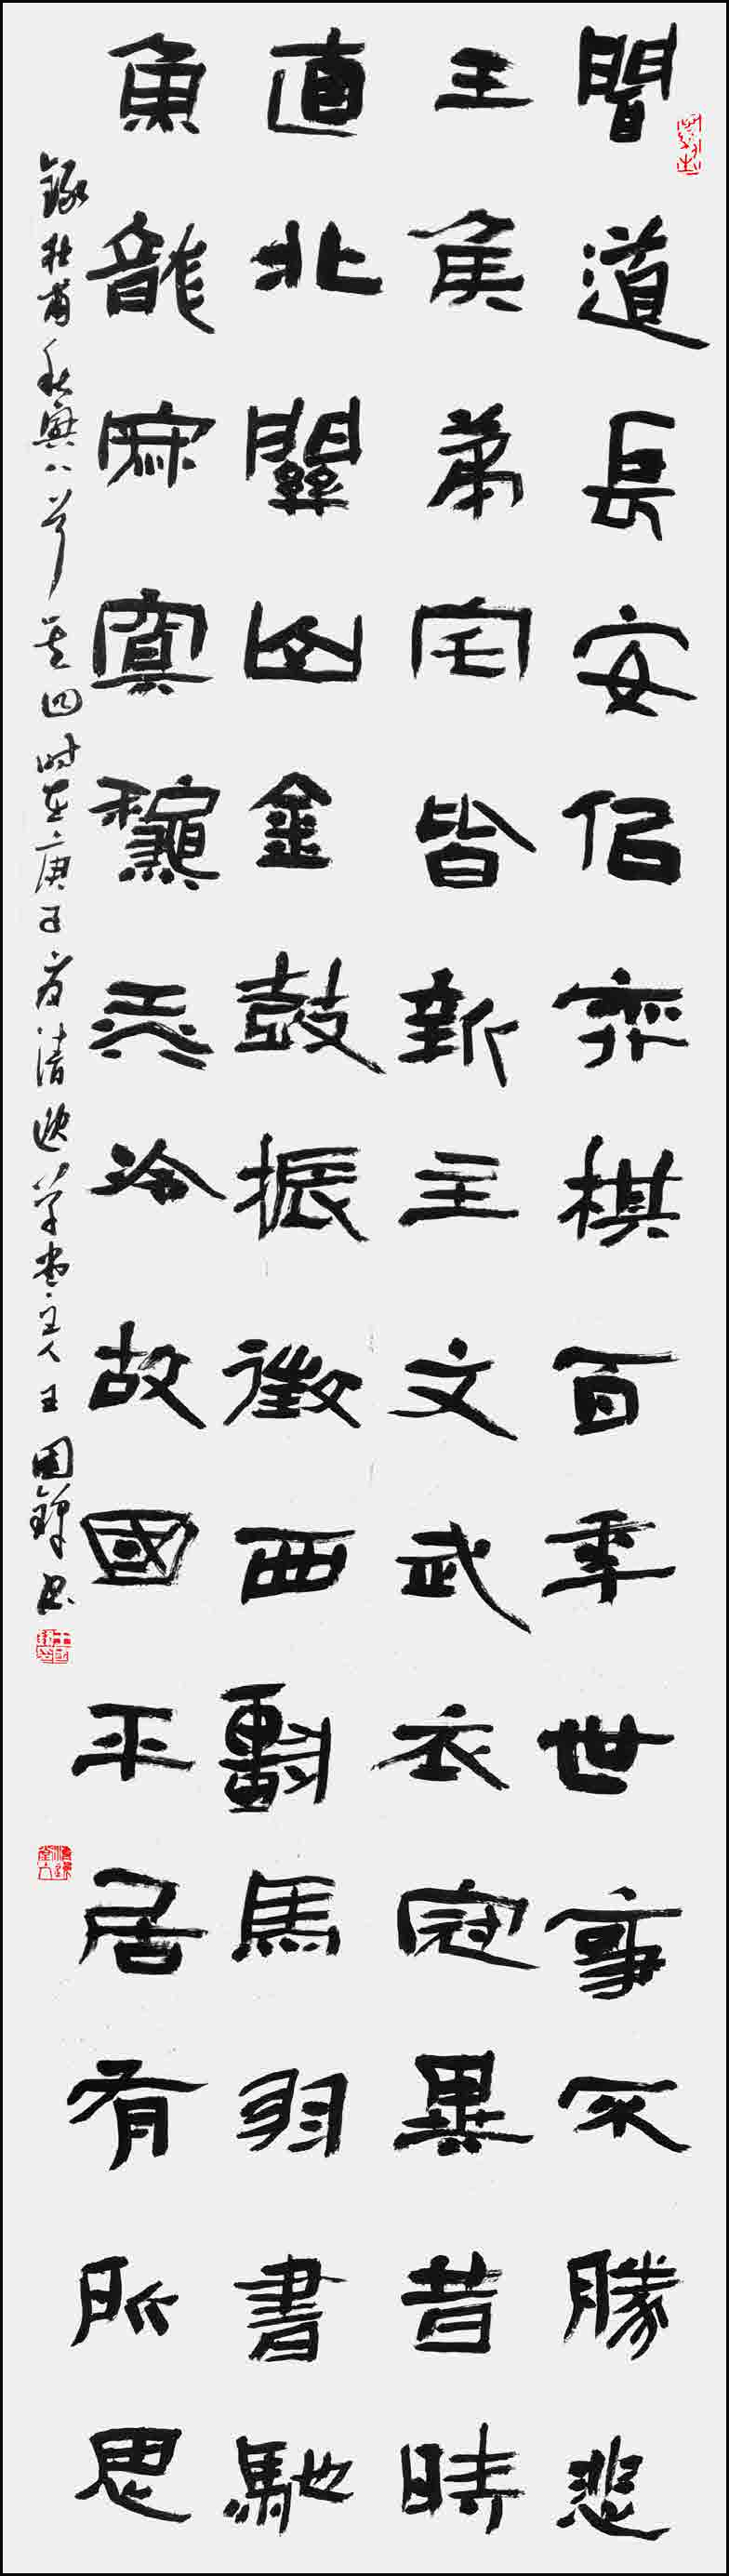 聞道長安佀弈棋百年世事不勝悲
王侯第宅皆新主文武衣冠異昔時
直北關山金鼓振徵西車馬羽書馳
魚龍寂寞龝江冷故國平居有所思
錄杜甫秋興八首其四時在庚子夏清逸草堂主人王國鋒書